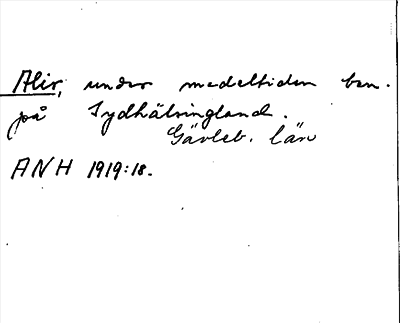 Alir, under medeltiden ben.
på Sydhälsingland.
Gävleb. län
ANH 1919:18.